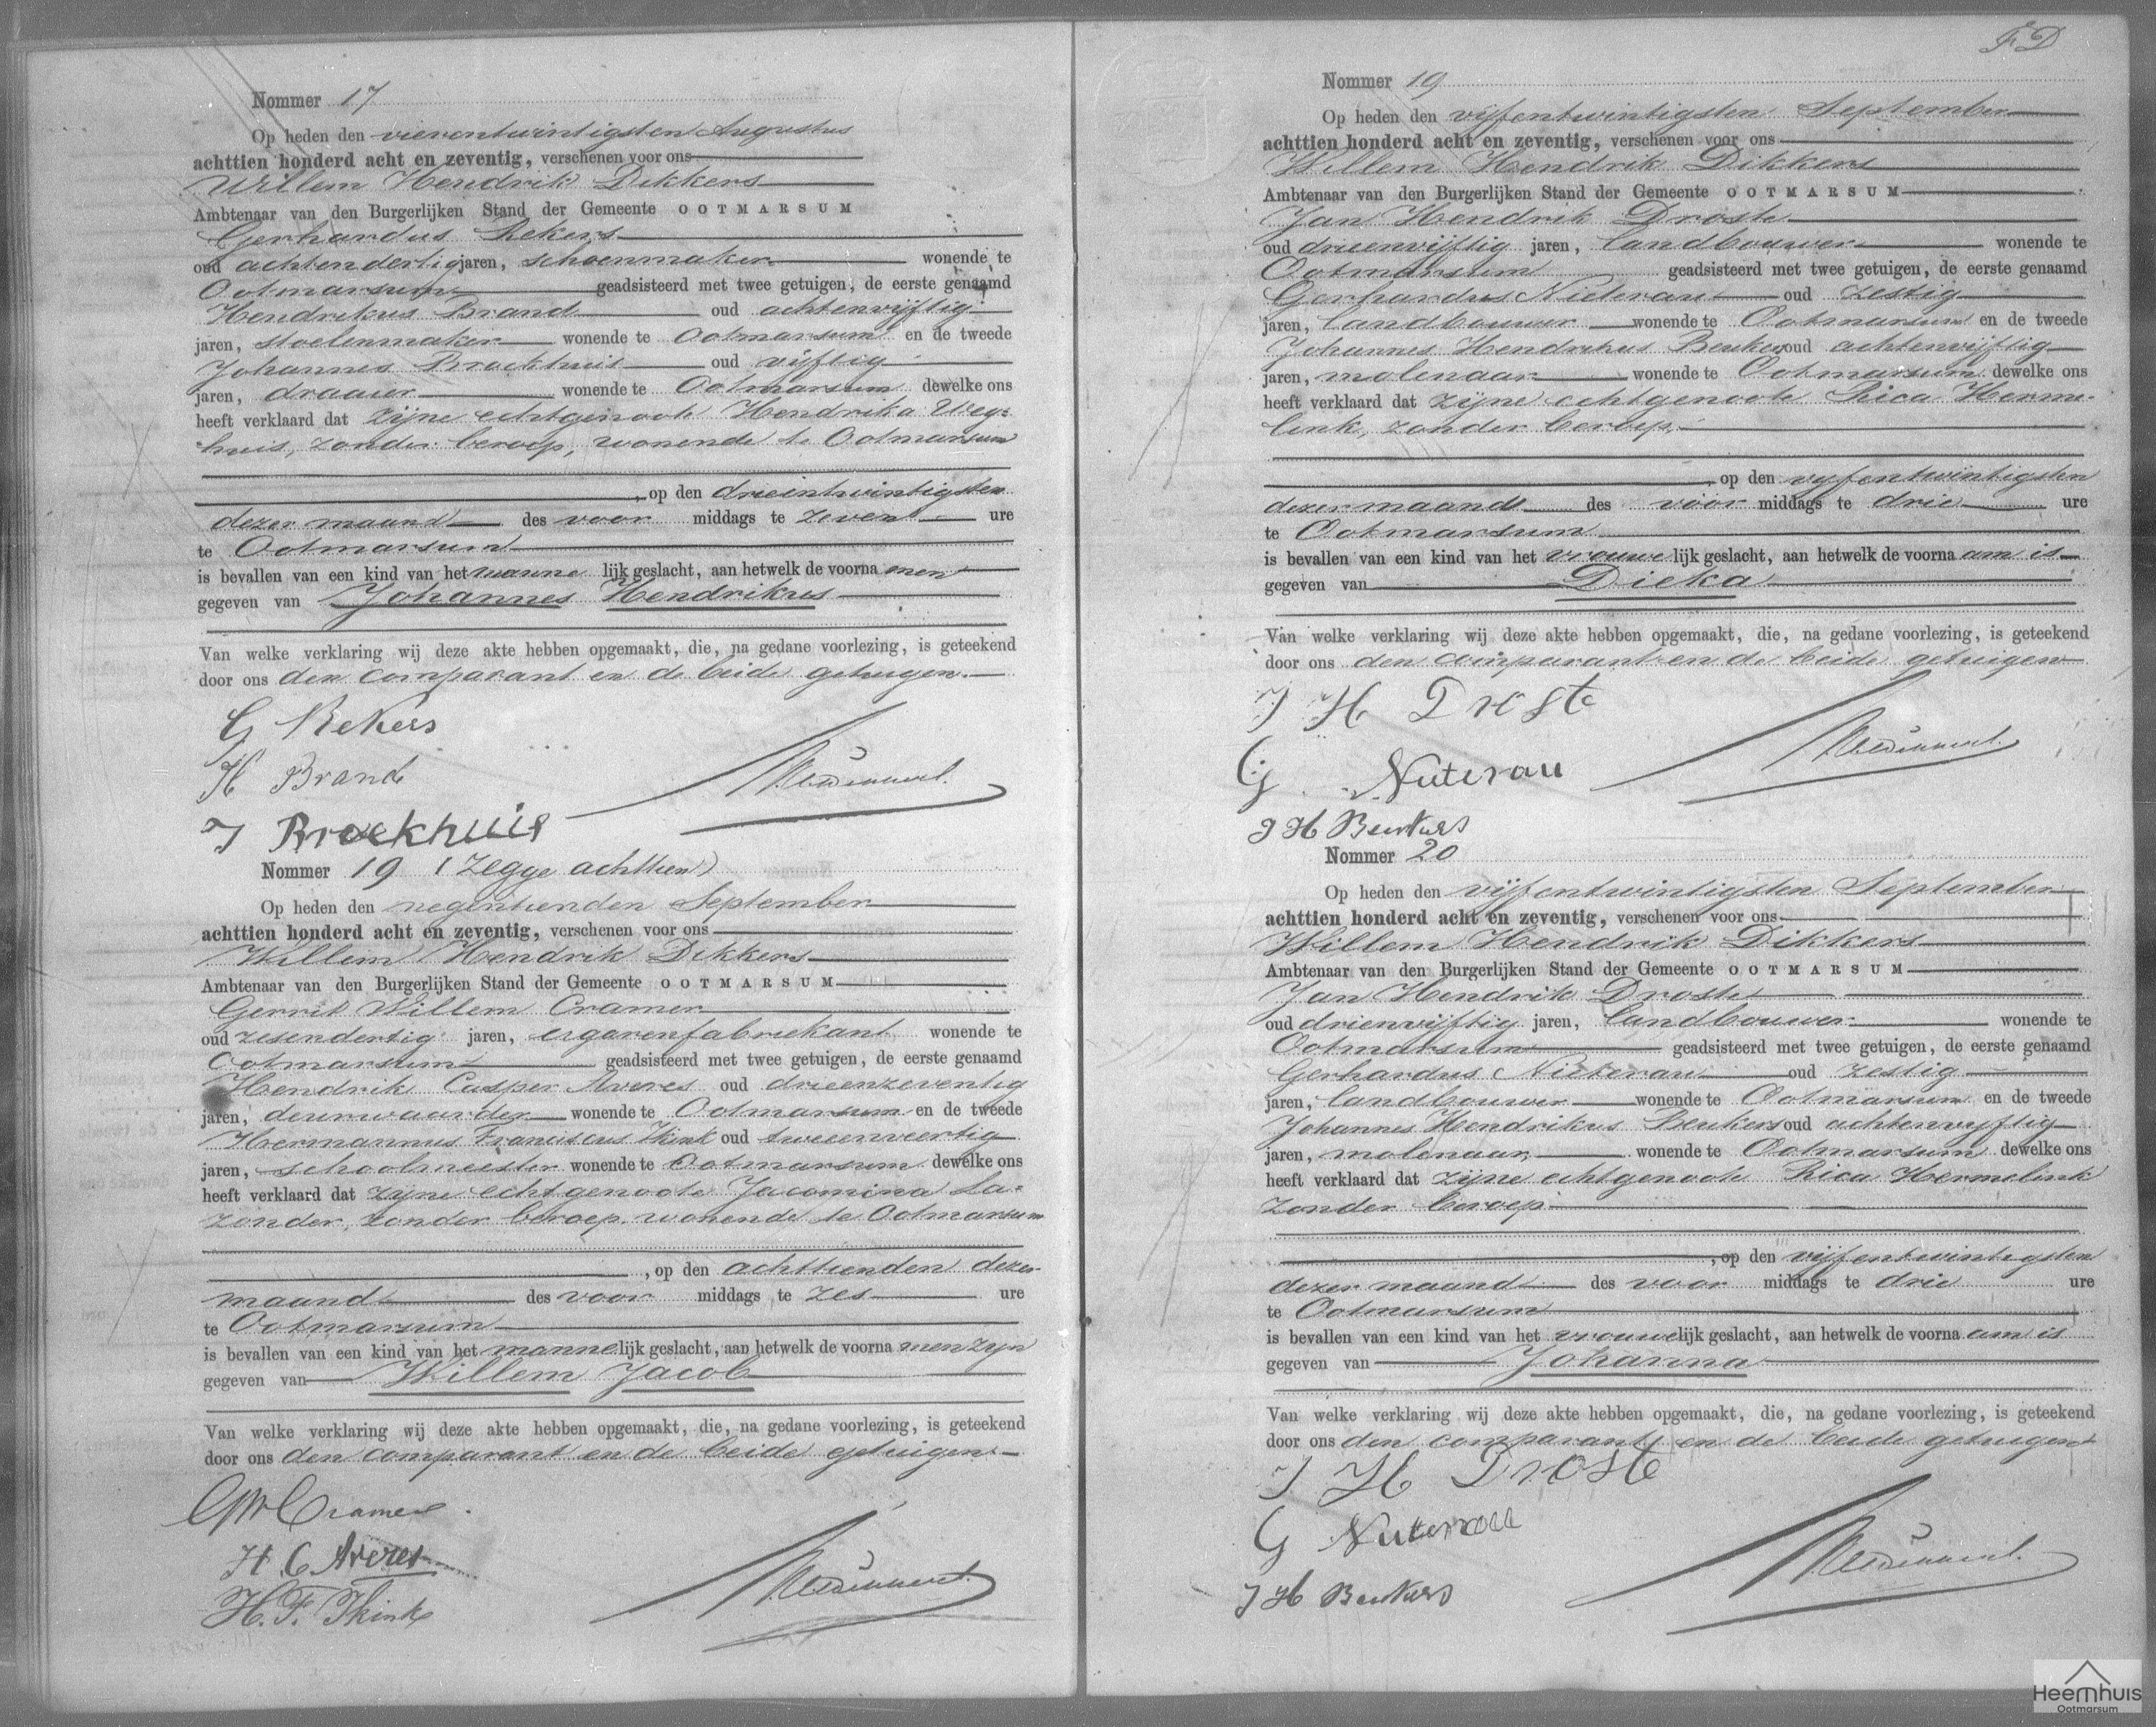 Nommer 17
Op heden den vierentwintigsten Augustus
achttien honderd acht en zeventig, verschenen voor ons
Willem Hendrik Dikkers
Ambtenaar van den Burgerlijken Stand der Gemeente OOTMARSUM
Gerhardus Rekers
oud achtendertig jaren, schoenmaker wonende te
Ootmarsum geadsisteerd met twee getuigen, de eerste genaamd
Hendrikus Brand oud achtenvijftig
jaren, stoelenmaker wonende te Ootmarsum en de tweede
Johannes Broekhuis oud vijftig
jaren, draaier wonende te Ootmarsum dewelke ons
heeft verklaard dat zijne echtgenoote Hendrika Weg-
huis, zonder beroep, wonende te Ootmarsum
, op den drieentwintigsten
dezer maand des voor middags te zeven ure
te Ootmarsum
is bevallen van een kind van het manne lijk geslacht, aan hetwelk de voorna men
gegeven van Johannes Hendrikus
Van welke verklaring wij deze akte hebben opgemaakt, die, na gedane voorlezing, is geteekend
door ons den comparant en de beide getuigen.
G Rekers
H Brand
J Broekhuis
Nommer 19 (zegge achttien)
Op heden den negentienden September
achttien honderd acht en zeventig, verschenen voor ons
Willem Hendrik Dikkers
Ambtenaar van den Burgerlijken Stand der Gemeente OOTMARSUM
Gerrit Willem Cramer
oud zesendertig jaren, cigarenfabriekant wonende te
Ootmarsum geadsisteerd met twee getuigen, de eerste genaamd
Hendrik Casper Averes oud drieenzeventig
jaren, deurwaarder wonende te Ootmarsum en de tweede
Hermannus Franciscus Ikink oud tweeenveertig
jaren, schoolmeester wonende te Ootmarsum dewelke ons
heeft verklaard dat zijne echtgenoote Jacomina La-
zonder, zonder beroep, wonende te Ootmarsum
, op den achttienden dezer
maand des voor middags te zes ure
te Ootmarsum
is bevallen van een kind van het manne lijk geslacht, aan hetwelk de voorna men zijn
gegeven van Willem Jacob
Van welke verklaring wij deze akte hebben opgemaakt, die, na gedane voorlezing, is geteekend
door ons den comparant en de beide getuigen
GW Cramer
H C Averes
H. F. Ikink
FD
Nommer 19
Op heden den vijfentwintigsten September
achttien honderd acht en zeventig, verschenen voor ons
Willem Hendrik Dikkers
Ambtenaar van den Burgerlijken Stand der Gemeente OOTMARSUM
Jan Hendrik Droste
oud drieenvijftig jaren, landbouwer wonende te
Ootmarsum geadsisteerd met twee getuigen, de eerste genaamd
Gerhardus Nieterau oud zestig
jaren, landbouwer wonende te Ootmarsum en de tweede
Johannes Hendrikus Beukers oud achtenvijftig
jaren, molenaar wonende te Ootmarsum dewelke ons
heeft verklaard dat zijne echtgenoote Rica Herme-
link, zonder beroep,
, op den vijfentwintigsten
dezer maand des voor middags te drie ure
te Ootmarsum
is bevallen van een kind van het vrouwe lijk geslacht, aan hetwelk de voorna am is
gegeven van Dieka
Van welke verklaring wij deze akte hebben opgemaakt, die, na gedane voorlezing, is geteekend
door ons den comparant en de beide getuigen
J H Droste
G Nieterau
J H Beukers
Nommer 20
Op heden den vijfentwintigsten September
achttien honderd acht en zeventig, verschenen voor ons
Willem Hendrik Dikkers
Ambtenaar van den Burgerlijken Stand der Gemeente OOTMARSUM
Jan Hendrik Droste
oud drienvijftig jaren, landbouwer wonende te
Ootmarsum geadsisteerd met twee getuigen, de eerste genaamd
Gerhardus Nieterau oud zestig
jaren, landbouwer wonende te Ootmarsum en de tweede
Johannes Hendrikus Beukers oud achtenvijftig
jaren, molenaar, wonende te Ootmarsum dewelke ons
heeft verklaard dat zijne echtgenoote Rica Hermelink
zonder beroep
, op den vijfentwintigsten
dezer maand des voor middags te drie ure
te Ootmarsum
is bevallen van een kind van het vrouwe lijk geslacht, aan hetwelk de voorna am is
gegeven van Johanna
Van welke verklaring wij deze akte hebben opgemaakt, die, na gedane voorlezing, is geteekend
door ons den comparant en de beide getuigen
J H Droste
G Nieterau
J H Beukers
Heemhuis
Ootmarsum